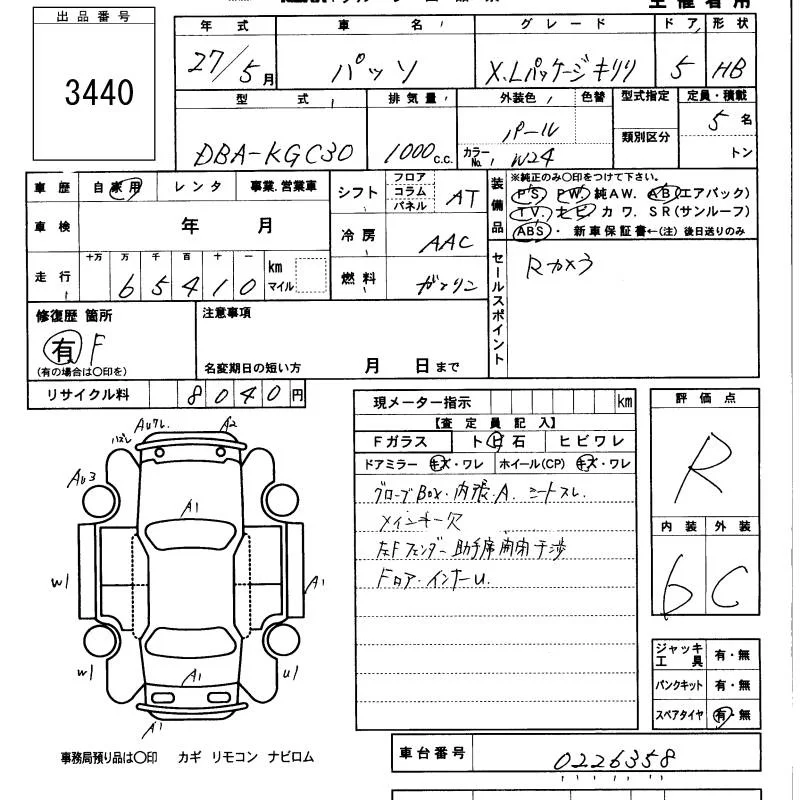 出品番号
3440
年式 車名 グレード ドア 形状
27/5月 パッソ X.Lパッケージキリリ 5 HB
型式 排気量 外装色 色替 型式指定 定員・積載
DBA-KGC30 1000c.c. パール 5名
カラーNo. W24 類別区分 トン
車歴 自家用 レンタ 事業.営業車
車検 年 月
走行 十万 万 千 百 十 一
65410 km マイル
シフト フロア コラム パネル AT
冷房 AAC
燃料 ガソリン
装備品
※純正のみ〇印をつけて下さい。
P'S. PW. 純AW. AB(エアバック)
TV. ナビ カワ. SR(サンルーフ)
ABS・新車保証書←(注) 後日送りのみ
セールスポイント
Rカメラ
修復歴 箇所
有 F
(有の場合は〇印を)
注意事項
名変期日の短い方 月 日まで
リサイクル料 8040円
現メーター指示 km
【査定員記入】
Fガラス ト 石 ヒビワレ
ドアミラー キズ・ワレ ホイール(CP) キズ・ワレ
グローブBox・内張.A. シートスレ.
メインキー欠
左Fフェンダー助手席開閉干渉
Fロア・インナーU.
評価点
R
内装 外装
6 C
ジャッキ工具 有・無
パンクキット 有・無
スペアタイヤ 有・無
A2
A1
A1
A1
A1
W1
W1
U1
事務局預り品は〇印 カギ リモコン ナビロム
車台番号 0226358